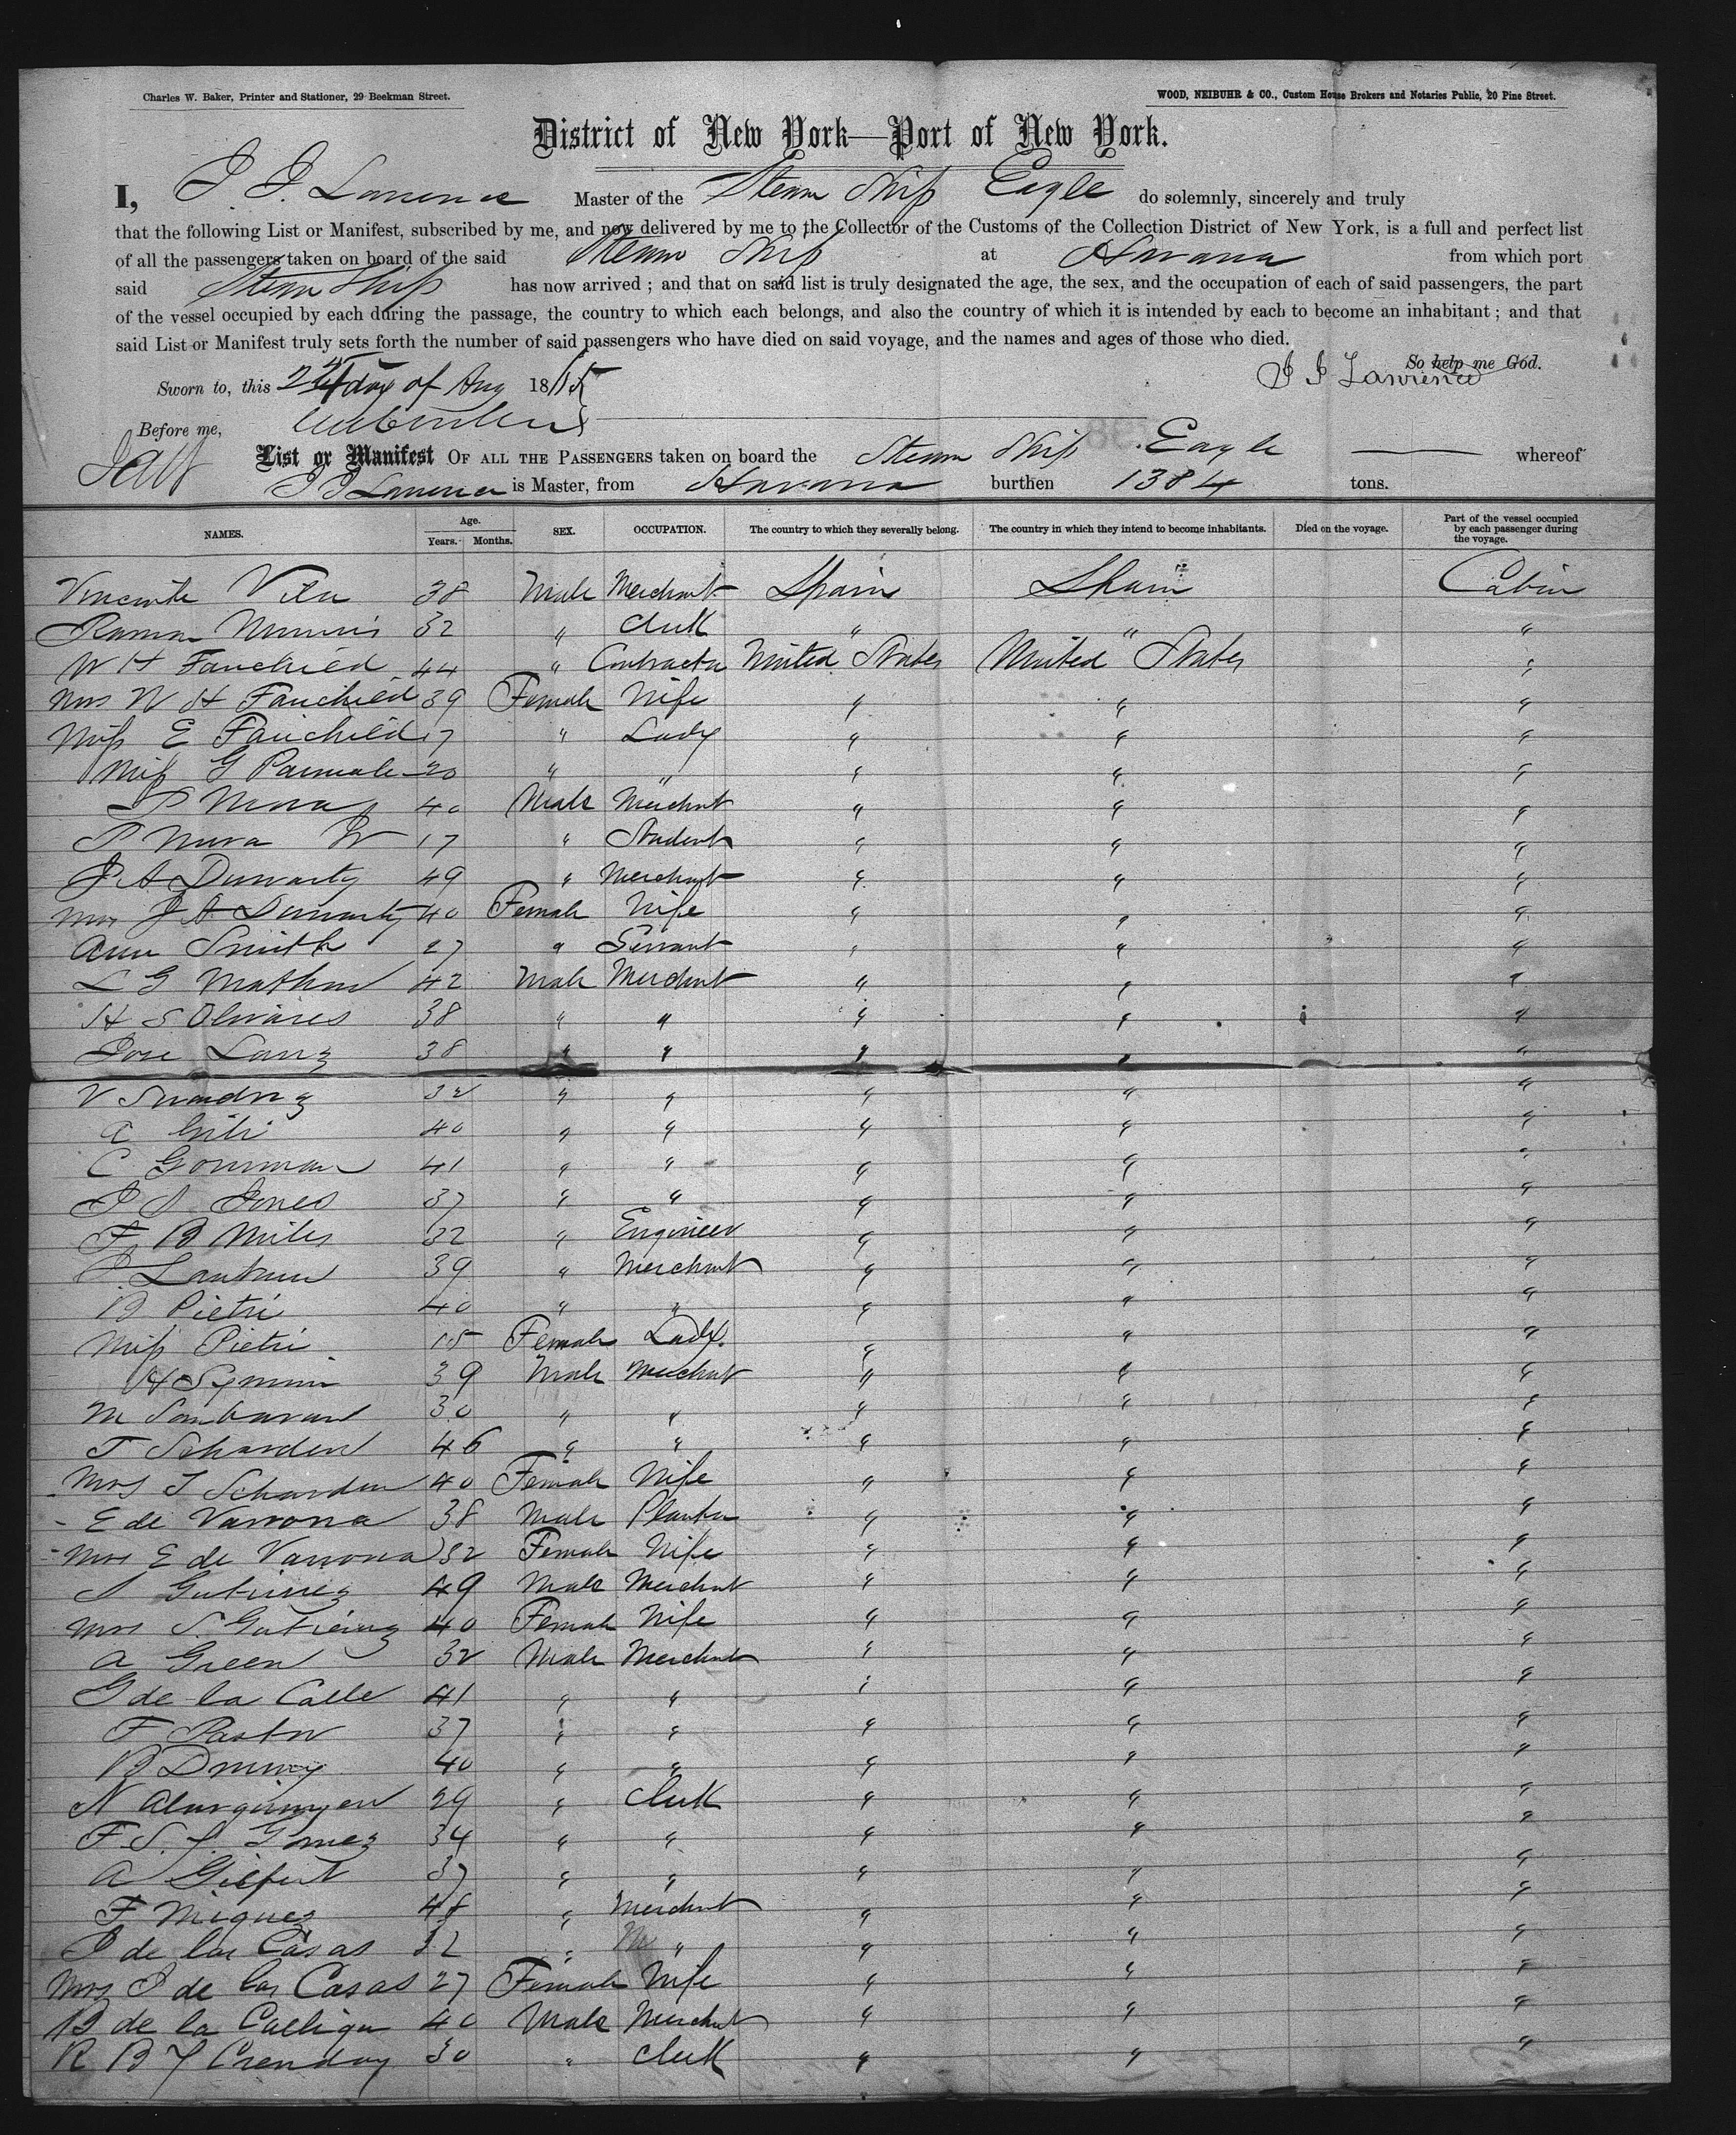 Charles W. Baker, Printer and Stationer, 29 Beekman Street.
WOOD, NEIBUHR & CO., Custom House Brokers and Notaries Public, 20 Pine Street.
District of New York—Port of New York.
I, Master of the Steam Ship Eagle do solemnly, sincerely and truly
that the following List or Manifest, subscribed by me, and now delivered by me to the Collector of the Customs of the Collection District of New York, is a full and perfect list
of all the passengers taken on board of the said Steam Ship at Havana from which port
said Steam Ship has now arrived ; and that on said list is truly designated the age, the sex, and the occupation of each of said passengers, the part
of the vessel occupied by each during the passage, the country to which each belongs, and also the country of which it is intended by each to become an inhabitant ; and that
said List or Manifest truly sets forth the number of said passengers who have died on said voyage, and the names and ages of those who died.
So help me God.
J J Lawrence
Sworn to, this day of Aug 18
Before me,
List or Manifest OF ALL THE PASSENGERS taken on board the Steam Ship Eagle whereof
is Master, from Havana burthen 1384 tons.
NAMES. Age. Years. Months. SEX. OCCUPATION. The country to which they severally belong. The country in which they intend to become inhabitants. Died on the voyage. Part of the vessel occupied by each passenger during the voyage.
Vila 38 Male Merchant Spain Spain Cabin
Ramon 32 " Clerk " " "
W H Fairchild 44 " Contractor United States United States "
Mrs W H Fairchild 39 Female Wife " " "
Miss E Fairchild 17 " Lady " " "
Miss G 20 " " " " "
P 40 Male Merchant " " "
P Jr 17 " Student " " "
J A 49 " Merchant " " "
Mrs J A 40 Female Wife " " "
Ann Smith 27 " Servant " " "
L G 42 Male Merchant " " "
H S Olivares 38 " " " " "
Jose Lanz 38 " " " " "
V 32 " " " " "
A 40 " " " " "
C 41 " " " " "
J S Jones 37 " " " " "
F B Miles 32 " Engineer " " "
J 39 " Merchant " " "
B Pietri 40 " " " " "
Miss Pietri 15 Female Lady " " "
H 39 Male Merchant " " "
M 30 " " " " "
T 46 " " " " "
Mrs T 40 Female Wife " " "
E de Varrona 38 Male Planter " " "
Mrs E de Varrona 32 Female Wife " " "
S Gutierrez 49 Male Merchant " " "
Mrs S. Gutierrez 40 Female Wife " " "
A Green 32 Male Merchant " " "
G de la Calle 41 " " " " "
F Pastor 37 " " " " "
B 40 " " " " "
N 29 " Clerk " " "
F. S. Gomez 34 " " " " "
A 37 " " " " "
F Miguez " Merchant " " "
J de las Casas 32 " " " " "
Mrs J de las Casas 27 Female Wife " " "
B de la 40 Male Merchant " " "
R B 30 " Clerk " " "